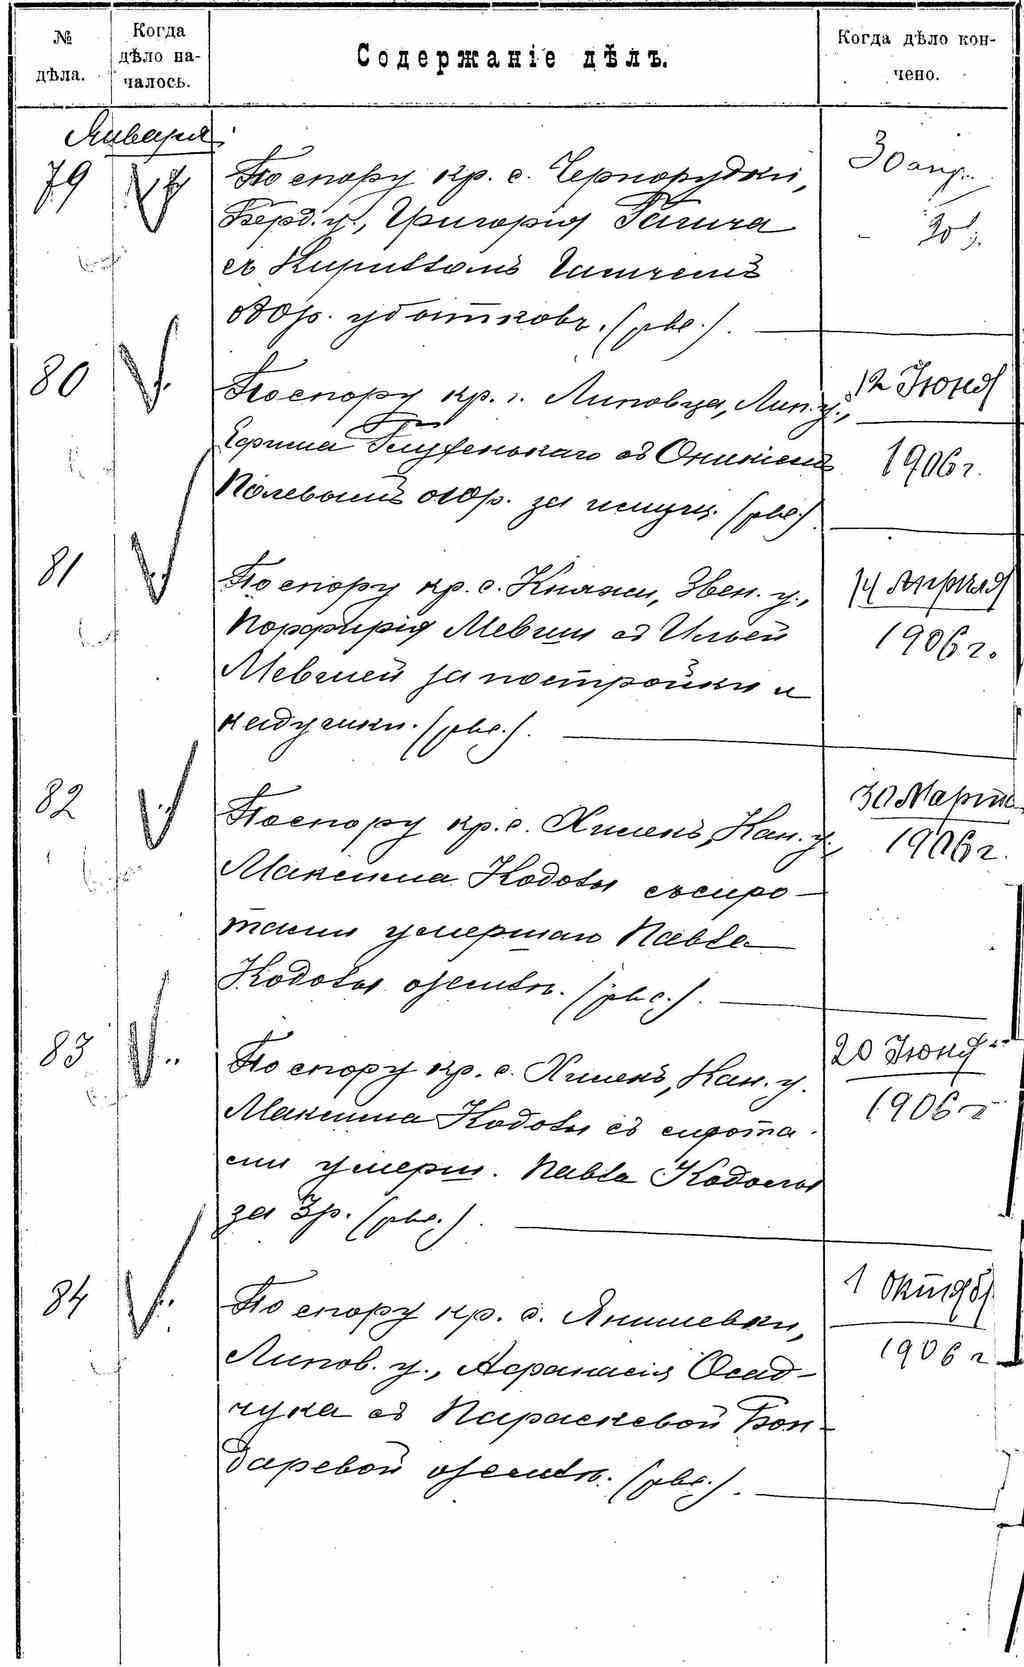 № дѣла.
Когда дѣло на-
чалось.
Содержаніе дѣлъ.
Когда дѣло кон-
чено.
Января
79
По спору кр. с. Чернорудки,
Берд. у., Григорія Гагича
съ Кирилломъ
убытковъ.
30 апр.
80
По спору кр. г. Липовца, Лип. у.,
Ефима съ Оникіемъ
Полевымъ за
12 Іюня
1906 г.
81
По спору кр. с. Княжи, Звен. у.,
Порфирія Мевши съ Ильей
Мевшей за постройки и
кадушки.
14 Апрѣля
1906 г.
82
По спору кр. с. Хмелекъ, Кан. у.,
Максима Кодолы съ сиро-
тами умершаго Павла
Кодолы о землѣ.
30 Марта
1906 г.
83
По спору кр. с. Хмелекъ, Кан. у.
Максима Кодолы съ сирота-
ми умерш. Павла Кодолы
за 3 р.
20 Іюня
1906 г
84
По спору кр. с. Янишевки,
Липов. у., Афанасія Осад-
чука съ Параскевой Бон-
даревой о землѣ.
1 Октября
1906 г